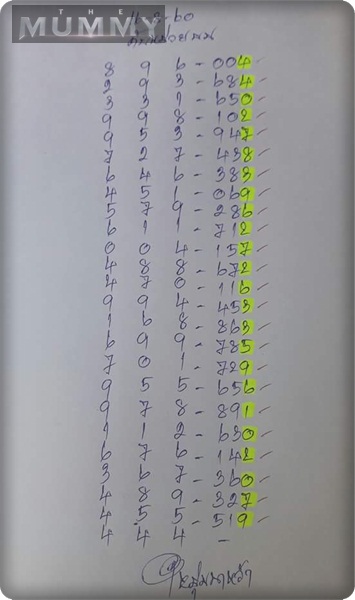 THE
MUMMY
8 9 6 - 004
2 9 3 - 684
3 3 1 - 650
9 9 8 - 102
9 5 3 - 947
7 2 7 - 438
6 4 6 - 383
4 5 1 - 069
5 7 9 - 286
6 1 1 - 712
0 0 4 - 157
4 8 8 - 672
4 7 0 - 116
9 9 4 - 453
1 6 8 - 863
6 9 9 - 785
7 0 1 - 729
9 5 5 - 656
9 7 8 - 891
1 1 2 - 630
6 7 6 - 142
3 6 7 - 360
4 8 9 - 327
4 5 5 - 519
4 4 4 -